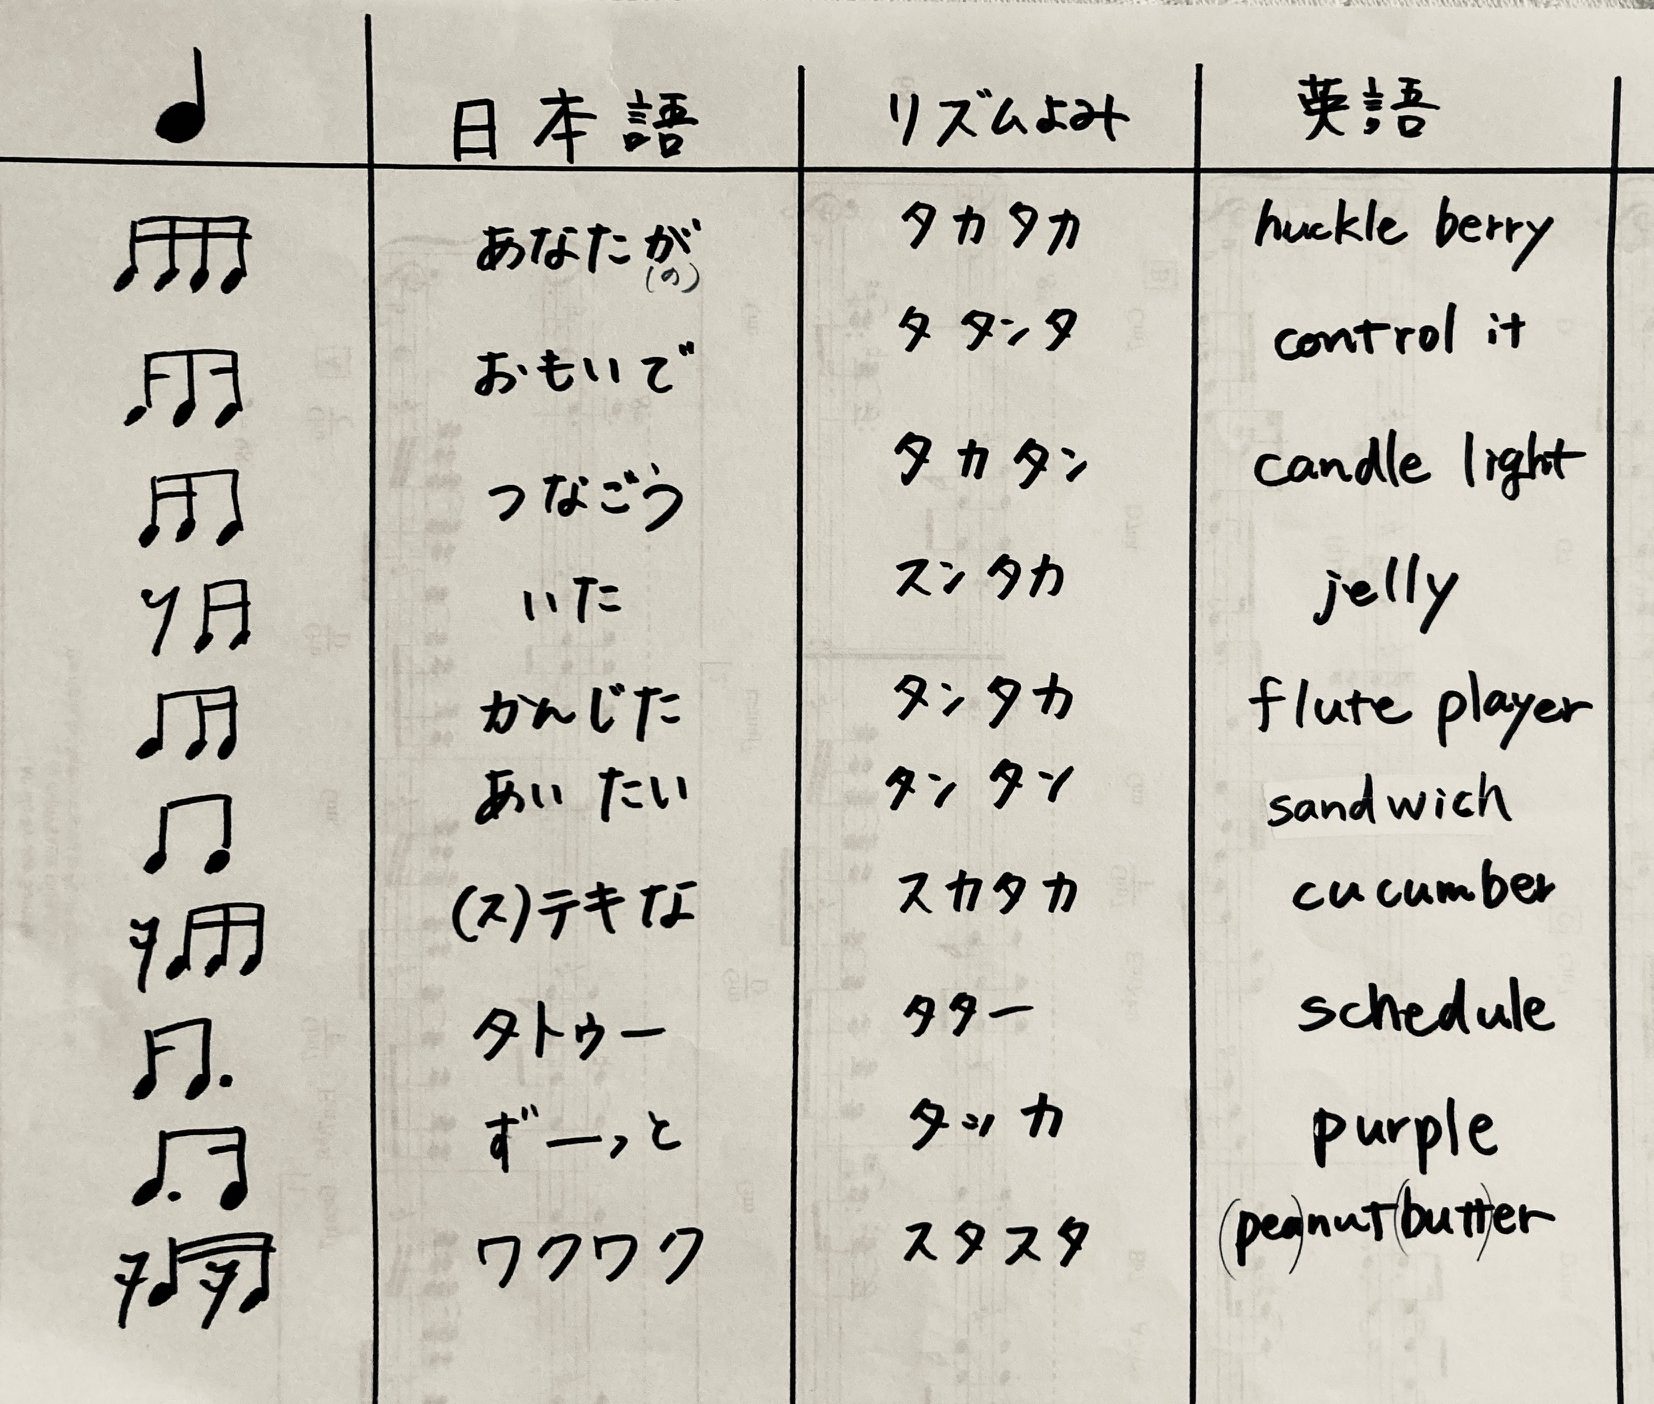 日本語 リズムよみ 英語
あなたが(の) タカタカ huckle berry
おもいで タ タンタ control it
つなごう タカタン candle light
いた スンタカ jelly
かんじた タンタカ flute player
あいたい タン タン sandwich
(ス)テキな スカタカ cucumber
タトゥー タター schedule
ずーっと タッカ purple
ワクワク スタスタ (pea)nut(butt)er